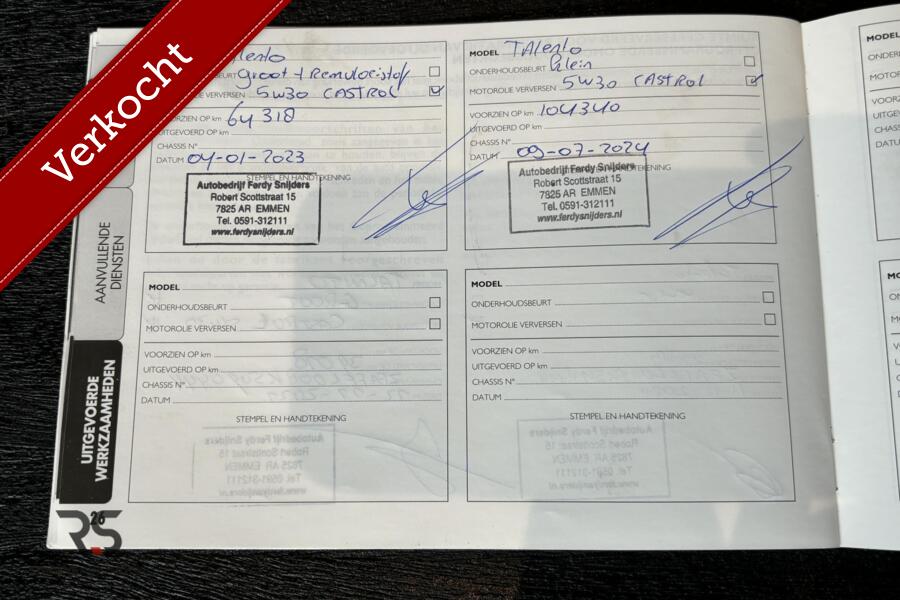 Verkocht
AANVULLENDE
DIENSTEN
UITGEVOERDE
WERKZAAMHEDEN
Groot + Remvloeistof
VERVERSEN 5W30 CASTROL
VOORZIEN OP km 64 318
UITGEVOERD OP km
CHASSIS N°
DATUM 04-01-2023
STEMPEL EN HANDTEKENING
Autobedrijf Ferdy Snijders
Robert Scottstraat 15
7825 AR EMMEN
Tel. 0591-312111
www.ferdysnijders.nl
MODEL TAlento
ONDERHOUDSBEURT Klein
MOTOROLIE VERVERSEN 5W30 CASTROL
VOORZIEN OP km 104340
UITGEVOERD OP km
CHASSIS N°
DATUM 09-07-2024
Autobedrijf Ferdy Snijders
Robert Scottstraat 15
7825 AR EMMEN
Tel. 0591-312111
www.ferdysnijders.nl
MODEL
ONDERHOUDSBEURT
MOTOROLIE VERVERSEN
VOORZIEN OP km
UITGEVOERD OP km
CHASSIS N°
DATUM
STEMPEL EN HANDTEKENING
MODEL
ONDERHOUDSBEURT
MOTOROLIE VERVERSEN
VOORZIEN OP km
UITGEVOERD OP km
CHASSIS N°
DATUM
STEMPEL EN HANDTEKENING
26
RS